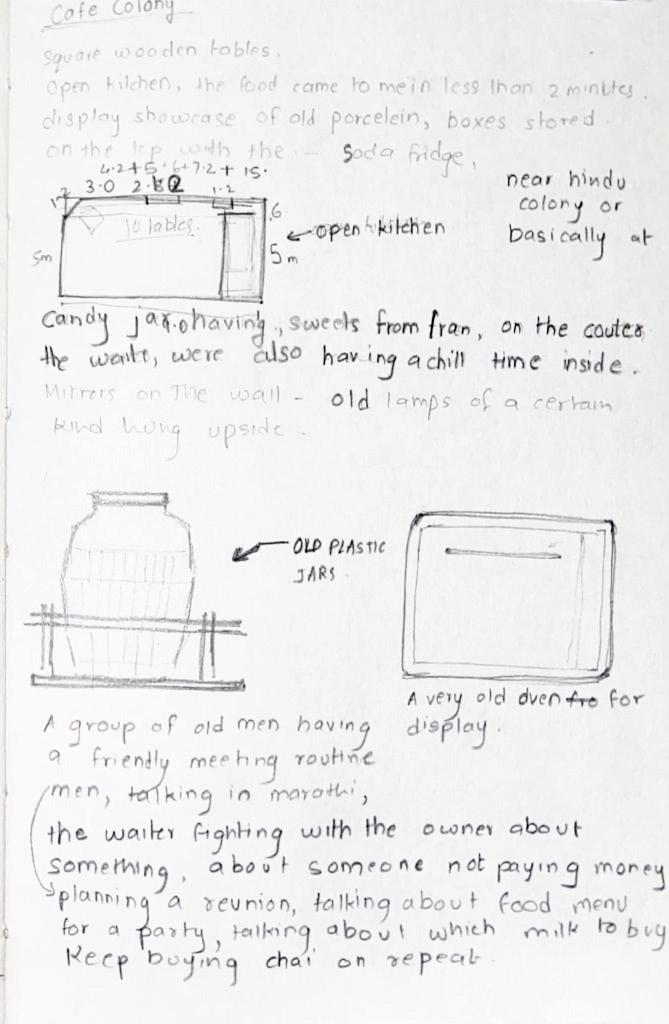 Cafe Colony
Square wooden tables.
Open kitchen, the food came to me in less than 2 minutes.
display showcase of old porcelein, boxes stored.
on the top with the - Soda fridge,
4.2+5.6+7.2+15.
3.0 2.
1.2
1.2
.6
10 tables.
5m
5m
open kitchen
near hindu
colony or
basically at
Candy jar having, sweets from fran, on the couter
the waite, were also having a chill time inside.
Mirrors on The wall - old lamps of a certain
kind hung upside.
OLD PLASTIC
JARS
A very old oven fro for
display.
A group of old men having
a friendly meeting routine
men, talking in marathi,
the waiter fighting with the owner about
something, about someone not paying money
planning a reunion, talking about food menu
for a party, talking about which milk to buy
Keep buying chai on repeat.